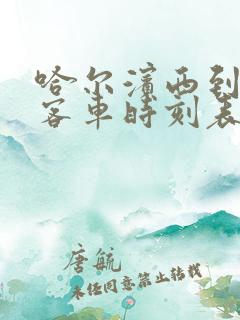 哈尔滨西到
客车时刻表
唐航
未经同意禁止转载